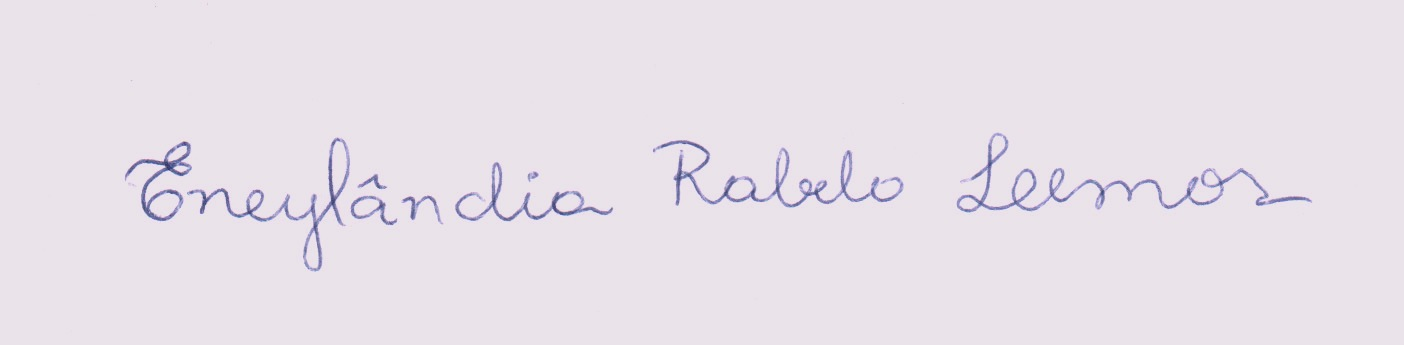 Eneylândia Rabelo Leemos